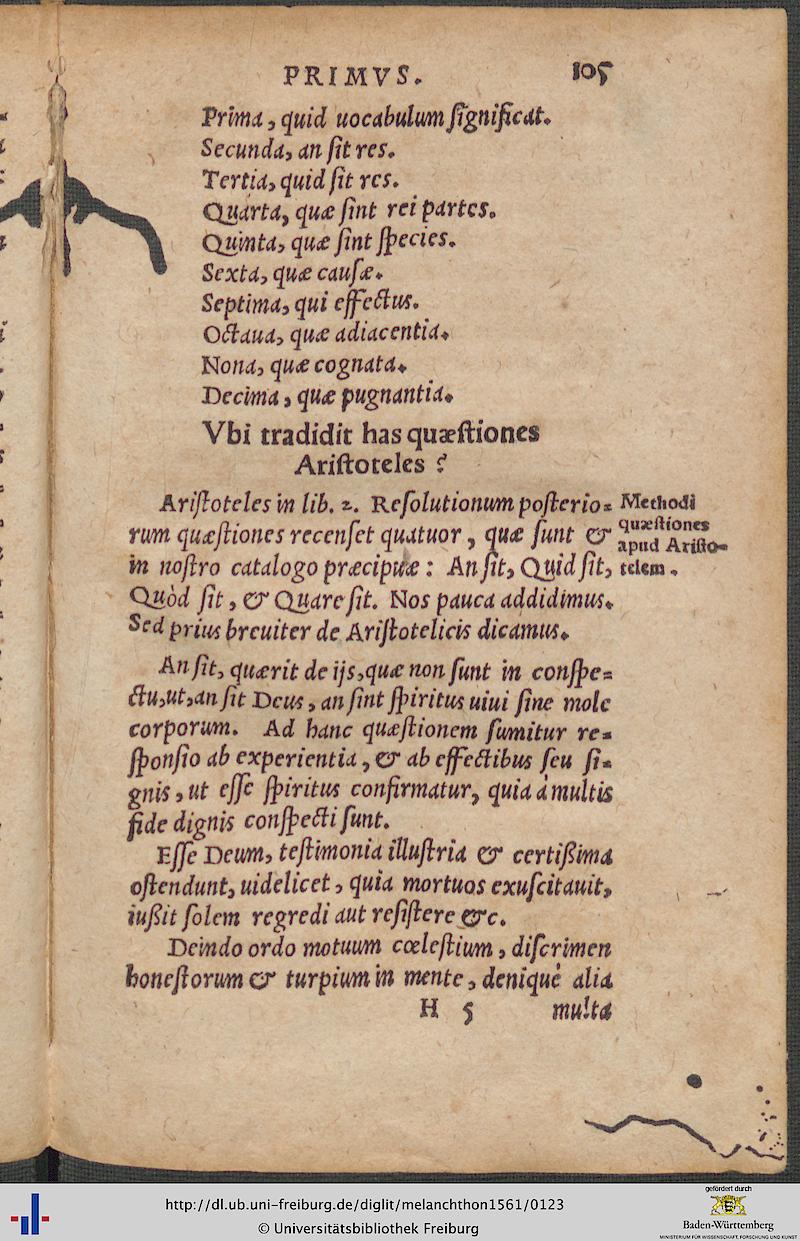 PRIMVS. 105
Prima, quid uocabulum ſignificat.
Secunda, an ſit res.
Tertia, quid ſit res.
Quarta, quæ ſint rei partes.
Quinta, quæ ſint ſpecies.
Sexta, quæ cauſæ.
Septima, qui effectus.
Octaua, quæ adiacentia.
Nona, quæ cognata.
Decima, quæ pugnantia.
Vbi tradidit has quæſtiones
Ariſtoteles?
Ariſtoteles in lib. 2. Reſolutionum poſterio-
rum quæſtiones recenſet quatuor, quæ ſunt &
in noſtro catalogo præcipuæ: An ſit, Quid ſit,
Quòd ſit, & Quare ſit. Nos pauca addidimus.
Sed prius breuiter de Ariſtotelicis dicamus.
Methodi
quæſtiones
apud Ariſto-
telem.
An ſit, quærit de ijs, quæ non ſunt in conſpe-
ctu, ut, an ſit Deus, an ſint ſpiritus uiui ſine mole
corporum. Ad hanc quæſtionem ſumitur re-
ſponſio ab experientia, & ab effectibus ſeu ſi-
gnis, ut eſſe ſpiritus confirmatur, quia à multis
fide dignis conſpecti ſunt.
Eſſe Deum, teſtimonia illuſtria & certißima
oſtendunt, uidelicet, quia mortuos exuſcitauit,
iußit ſolem regredi aut reſiſtere &c.
Deindo ordo motuum cœleſtium, diſcrimen
honeſtorum & turpium in mente, deniquè alia
H 5 multa
http://dl.ub.uni-freiburg.de/diglit/melanchthon1561/0123
© Universitätsbibliothek Freiburg
gefördert durch
Baden-Württemberg
MINISTERIUM FÜR WISSENSCHAFT, FORSCHUNG UND KUNST